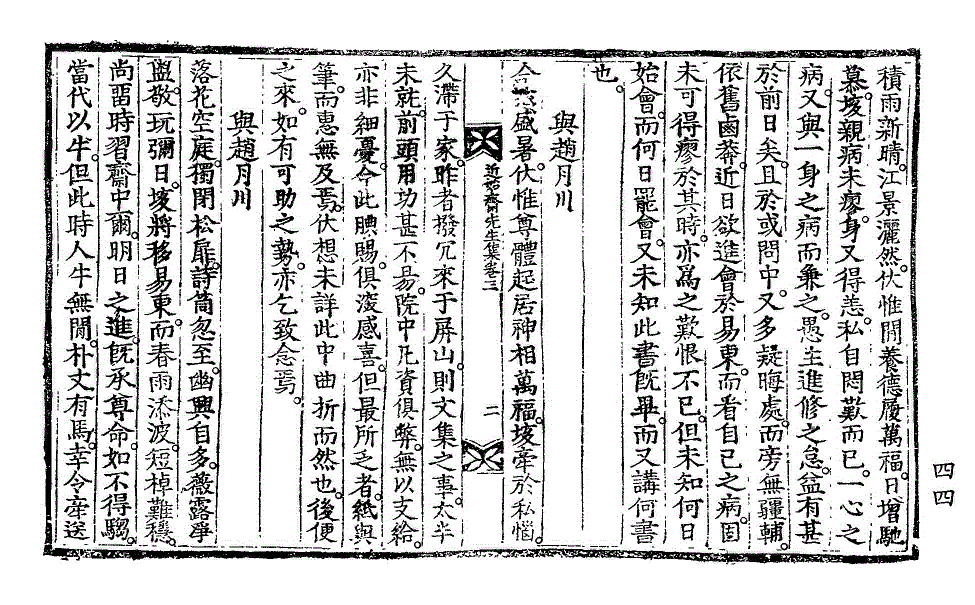 積雨新晴。江景灑然。伏惟閒養德履萬福。日增馳
慕。埈親病未瘳。身又得恙。私自悶歎而已。一心之
病。又與一身之病而兼之。愚生進修之怠。益有甚
於前日矣。且於或問中。又多疑晦處。而旁無彊輔。
依舊鹵莽。近日欲進會於易東。而看自己之病。固
未可得瘳於其時。亦爲之歎恨不已。但未知何日
始會。而何日罷會。又未知此書旣畢。而又講何書
也。
與趙月川
令 盛暑。伏惟尊體起居神相萬福。埈牽於私惱。
近始齋先生集卷三 二
久滯于家。昨者撥冗來于屛山。則文集之事。太半
未就。前頭用功甚不易。院中凡資俱弊。無以支給。
亦非細憂。今此腆賜。俱深感喜。但最所乏者。紙與
筆。而惠無及焉。伏想未詳此中曲折而然也。後便
之來。如有可助之勢。亦乞致念焉。
與趙月川
落花空庭。獨閉松扉。詩筒忽至。幽興自多。薇露淨
盥。敬玩彌日。埈將移易東。而春雨添波。短棹難穩。
尙留時習齋中爾。明日之進。旣承尊命。如不得騶。
當代以牛。但此時人牛無閒。朴丈有馬。幸令牽送
四四